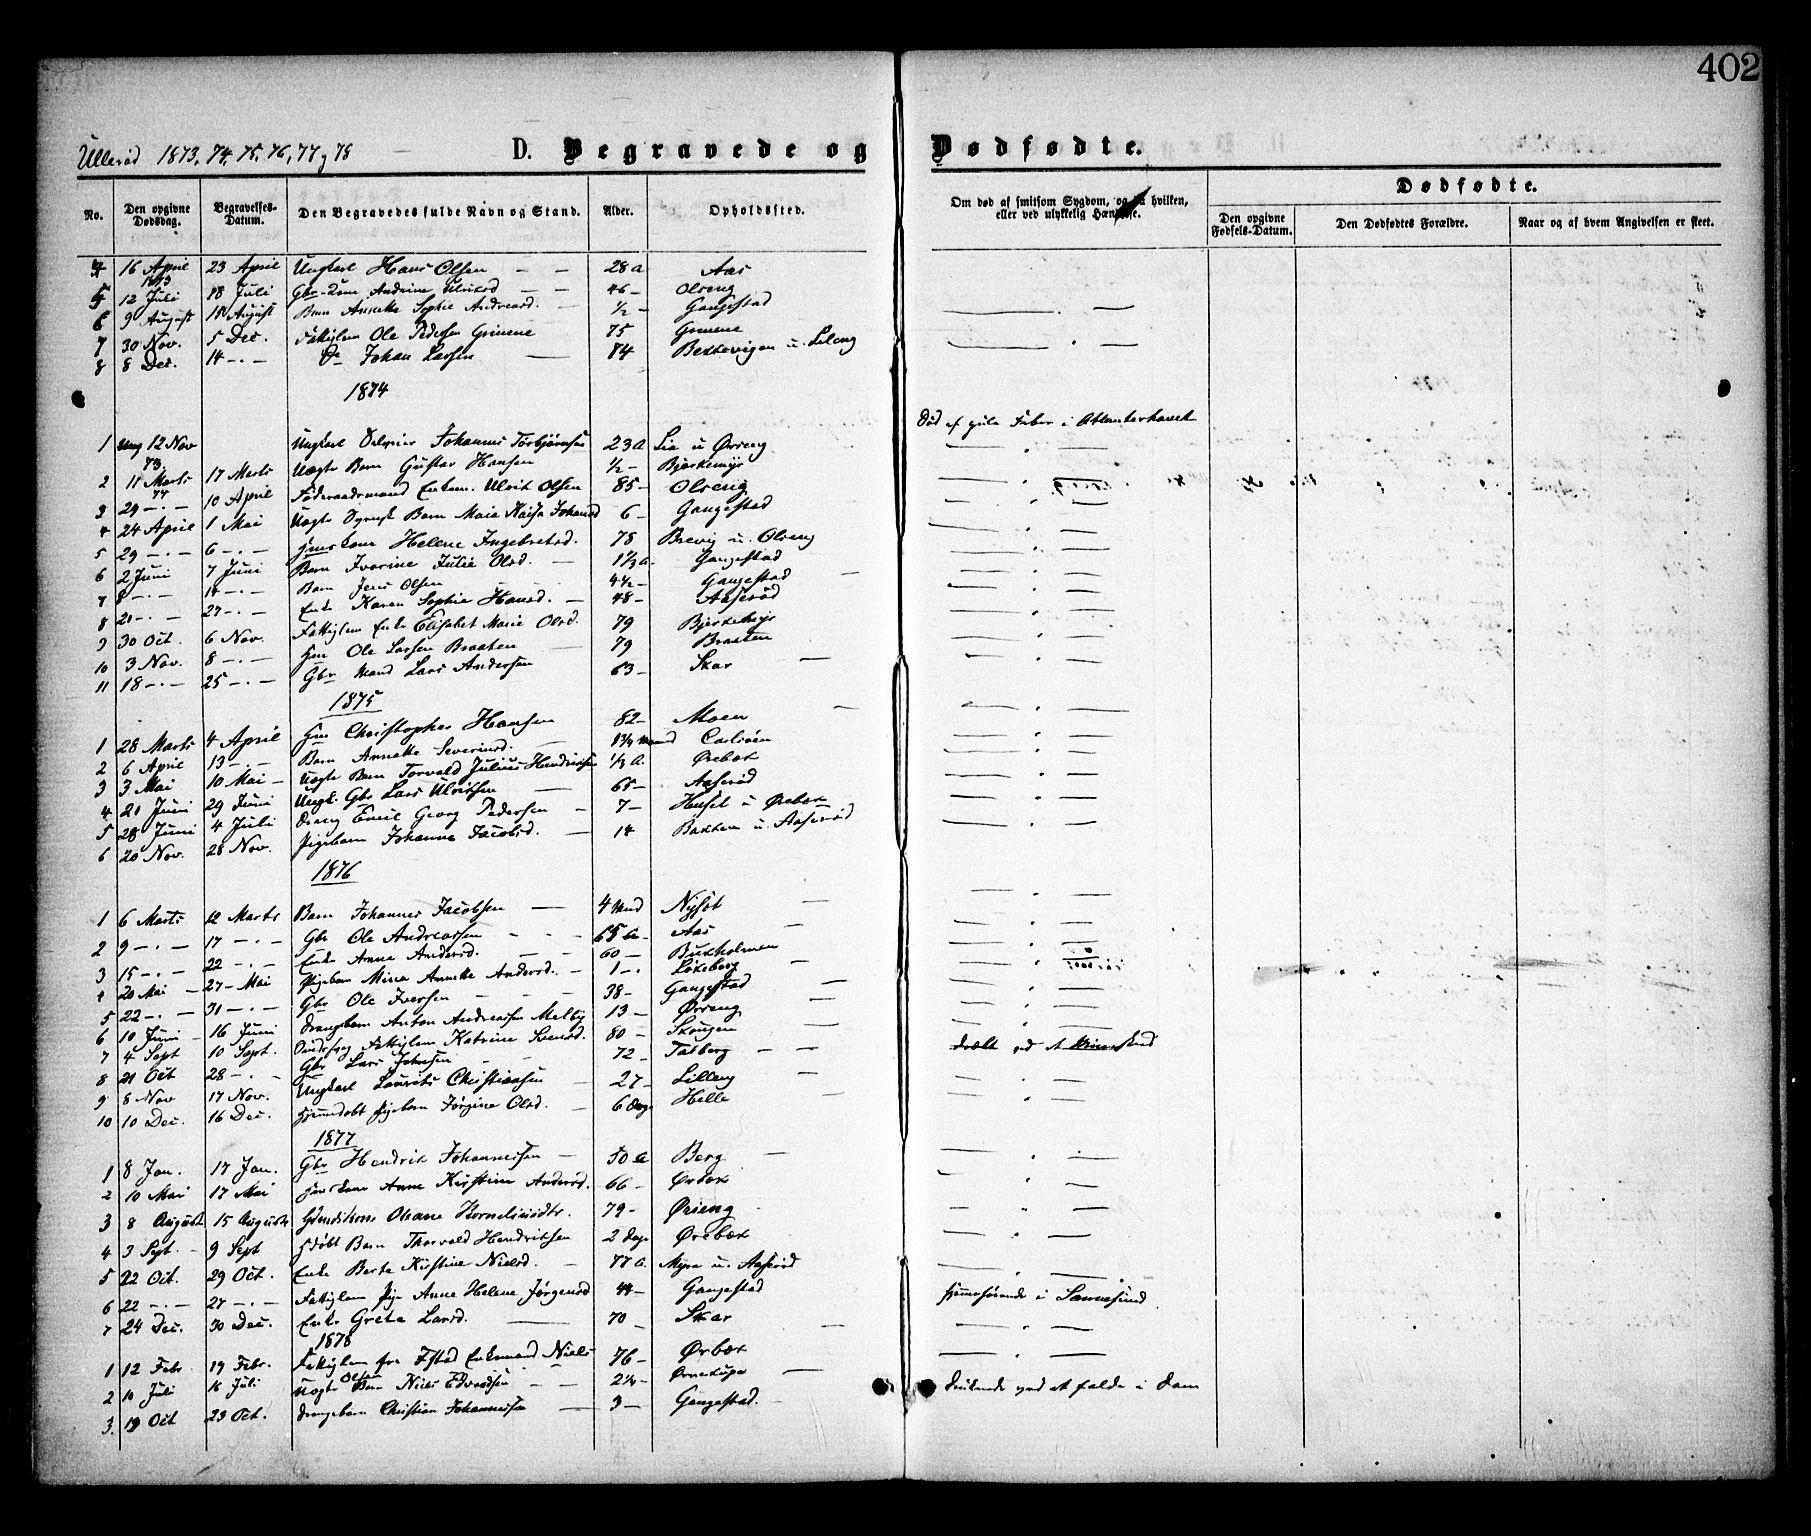 402
Ullerød 1873, 74, 75, 76, 77 & 78
D. Begravede og Dødfødte.
No. Den opgivne Dødsdag. Begravelses-Datum. Den Begravedes fulde Navn og Stand. Alder. Opholdssted. Om død af smitsom Sygdom, og da hvilken, eller ved ulykkelig Hændelse. Dødfødte. Den opgivne Fødsels-Datum. Den Dødfødtes Forældre. Naar og af hvem Angivelsen er skeet.
4 16 April 1873 23 April Ungkarl Hans Olsen 28 a Aas
5 12 Juli 18 Juli Gbr. Kone Andrine Ulriksd 46 Olseng
6 9 August 15 August Barn Anneke Sophie Andreasd. 1/2 Gangestad
7 30 Nov. 5 Dec. Fattiglem Ole Pedersen Grimene 75 Grimene
8 8 Dec. 14 - Do Johan Larsen 84 Bektevigen u. Lileng
1874
1 12 Nov 73. Ungkarl Johannes Torbjørnsen 23 a Lia u Ørseng Død af gule Feber i Atlanterhavet
2 11 Marts 74 17 Marts Uægte Barn Gustav Hansen 1/2 Bjerkemyr
3 29 - 10 April Føderaadsmand Enkem. Ulrik Olsen 85 Olseng
4 24 April 1 Mai Uægte Barn Maia Kaisa Johansd 6 Gangestad
5 29 - 6 - Hmskone Helene Ingebretsd. 78 Brevig u. Olseng
6 2 Juni 7 Juni Barn Ivarine Julie Olsd. 1 1/3 a. Gangestad
7 8 - 14 - Barn Jens Olsen 4 1/2 Gangestad
8 21 - 27 - Enke Karen Sophie Hansd. 48 Aaserød
9 30 Oct. 6 Nov. Fattiglem Enke Elisabet Marie Olsd. 79 Bjerkemyr
10 3 Nov. 8 - Hm Ole Larsen Braaten 79 Braaten
11 18 - 25 - Gbr Mand Lars Andersen 63 Skar
1875
1 28 Marts 4 April Hm Christopher Hansen 82 Moen
2 6 April 13 - Barn Anneke Severinsd. 1 3/4 Maaned
3 3 Mai 10 Mai Uægte Barn Torvald Julius Hendriksen 1/3 a. Ørebæk
4 21 Juni 29 Juni Ungk. Gbr Lars Ulriksen 65 Aaserød
5 28 Juni 4 Juli Dreng Emil Georg Pedersen 7 Huset u Ørebæk
6 20 Nov. 28 Nov. Pigebarn Johanne Jacobsd. 14 Bakken u. Aaserød
1876
1 6 Marts 12 Marts Barn Johannes Jacobsen 4 Mnd Nyføt
2 9 - 17 - Gbr Ole Andreassen 65 a Aas
3 15 - 22 - Enke Anne Andersd. 60 Buxholmen
4 20 Mai 27 Mai Pigebarn Mina Anneke Andersd. 1 Løkeberg
5 22 - 31 - Gbr Ole Iversen 38 Gangestad
6 10 Juni 16 Juni Drengbarn Anton Andreassen Melby 13 Ørseng
7 4 Sept 10 Sept. Fattiglem Katrine Svensd. 80 Skougen
8 21 Oct 28 - Gbr Lars Johnsen 72 Talberg
9 8 Nov 17 Nov. Ungkarl Laurits Christiansen 27 Lilleng
10 10 Dec. 16 Dec. Hjemmedøbt Pigebarn Jørgine Olsd. 6 Dage Helle
1877
1 8 Jan. 17 Jan. Gbr Hendrik Johannesen 50 a Berg
2 10 Mai 17 Mai Hmskone Anne Kirstine Andersd. 66 Ørebæk
3 8 August 15 August Oleane Kornelinsdtr. 79 Ørseng
4 3 Sept. 9 Sept Hdøbt Barn Thorvald Hendriksen 2 dage Ørebæk
5 22 Oct. 29 Oct. Enke Berte Kirstine Nielsd. 77 a. Myra u. Aaserød
6 22 - 27 - Fattiglem Pige Anne Helene Jørgensd 44 Gangestad hjemmehørende i Sannesund
7 24 Dec. 30 Dec. Enke Grete Larsd. 70 Skar
1878
1 12 Febr 19 Febr. Fattiglem fra Ystad Enkemand Niels Olsen 76 Ørbæk
2 10 Juli 16 Juli Uægte Barn Niels Edvardsen 2 1/4 druknede ved at falde i Dam
3. 19 Oct 23 Oct. Drengebarn Christian Johannesen 3 Gangestad.